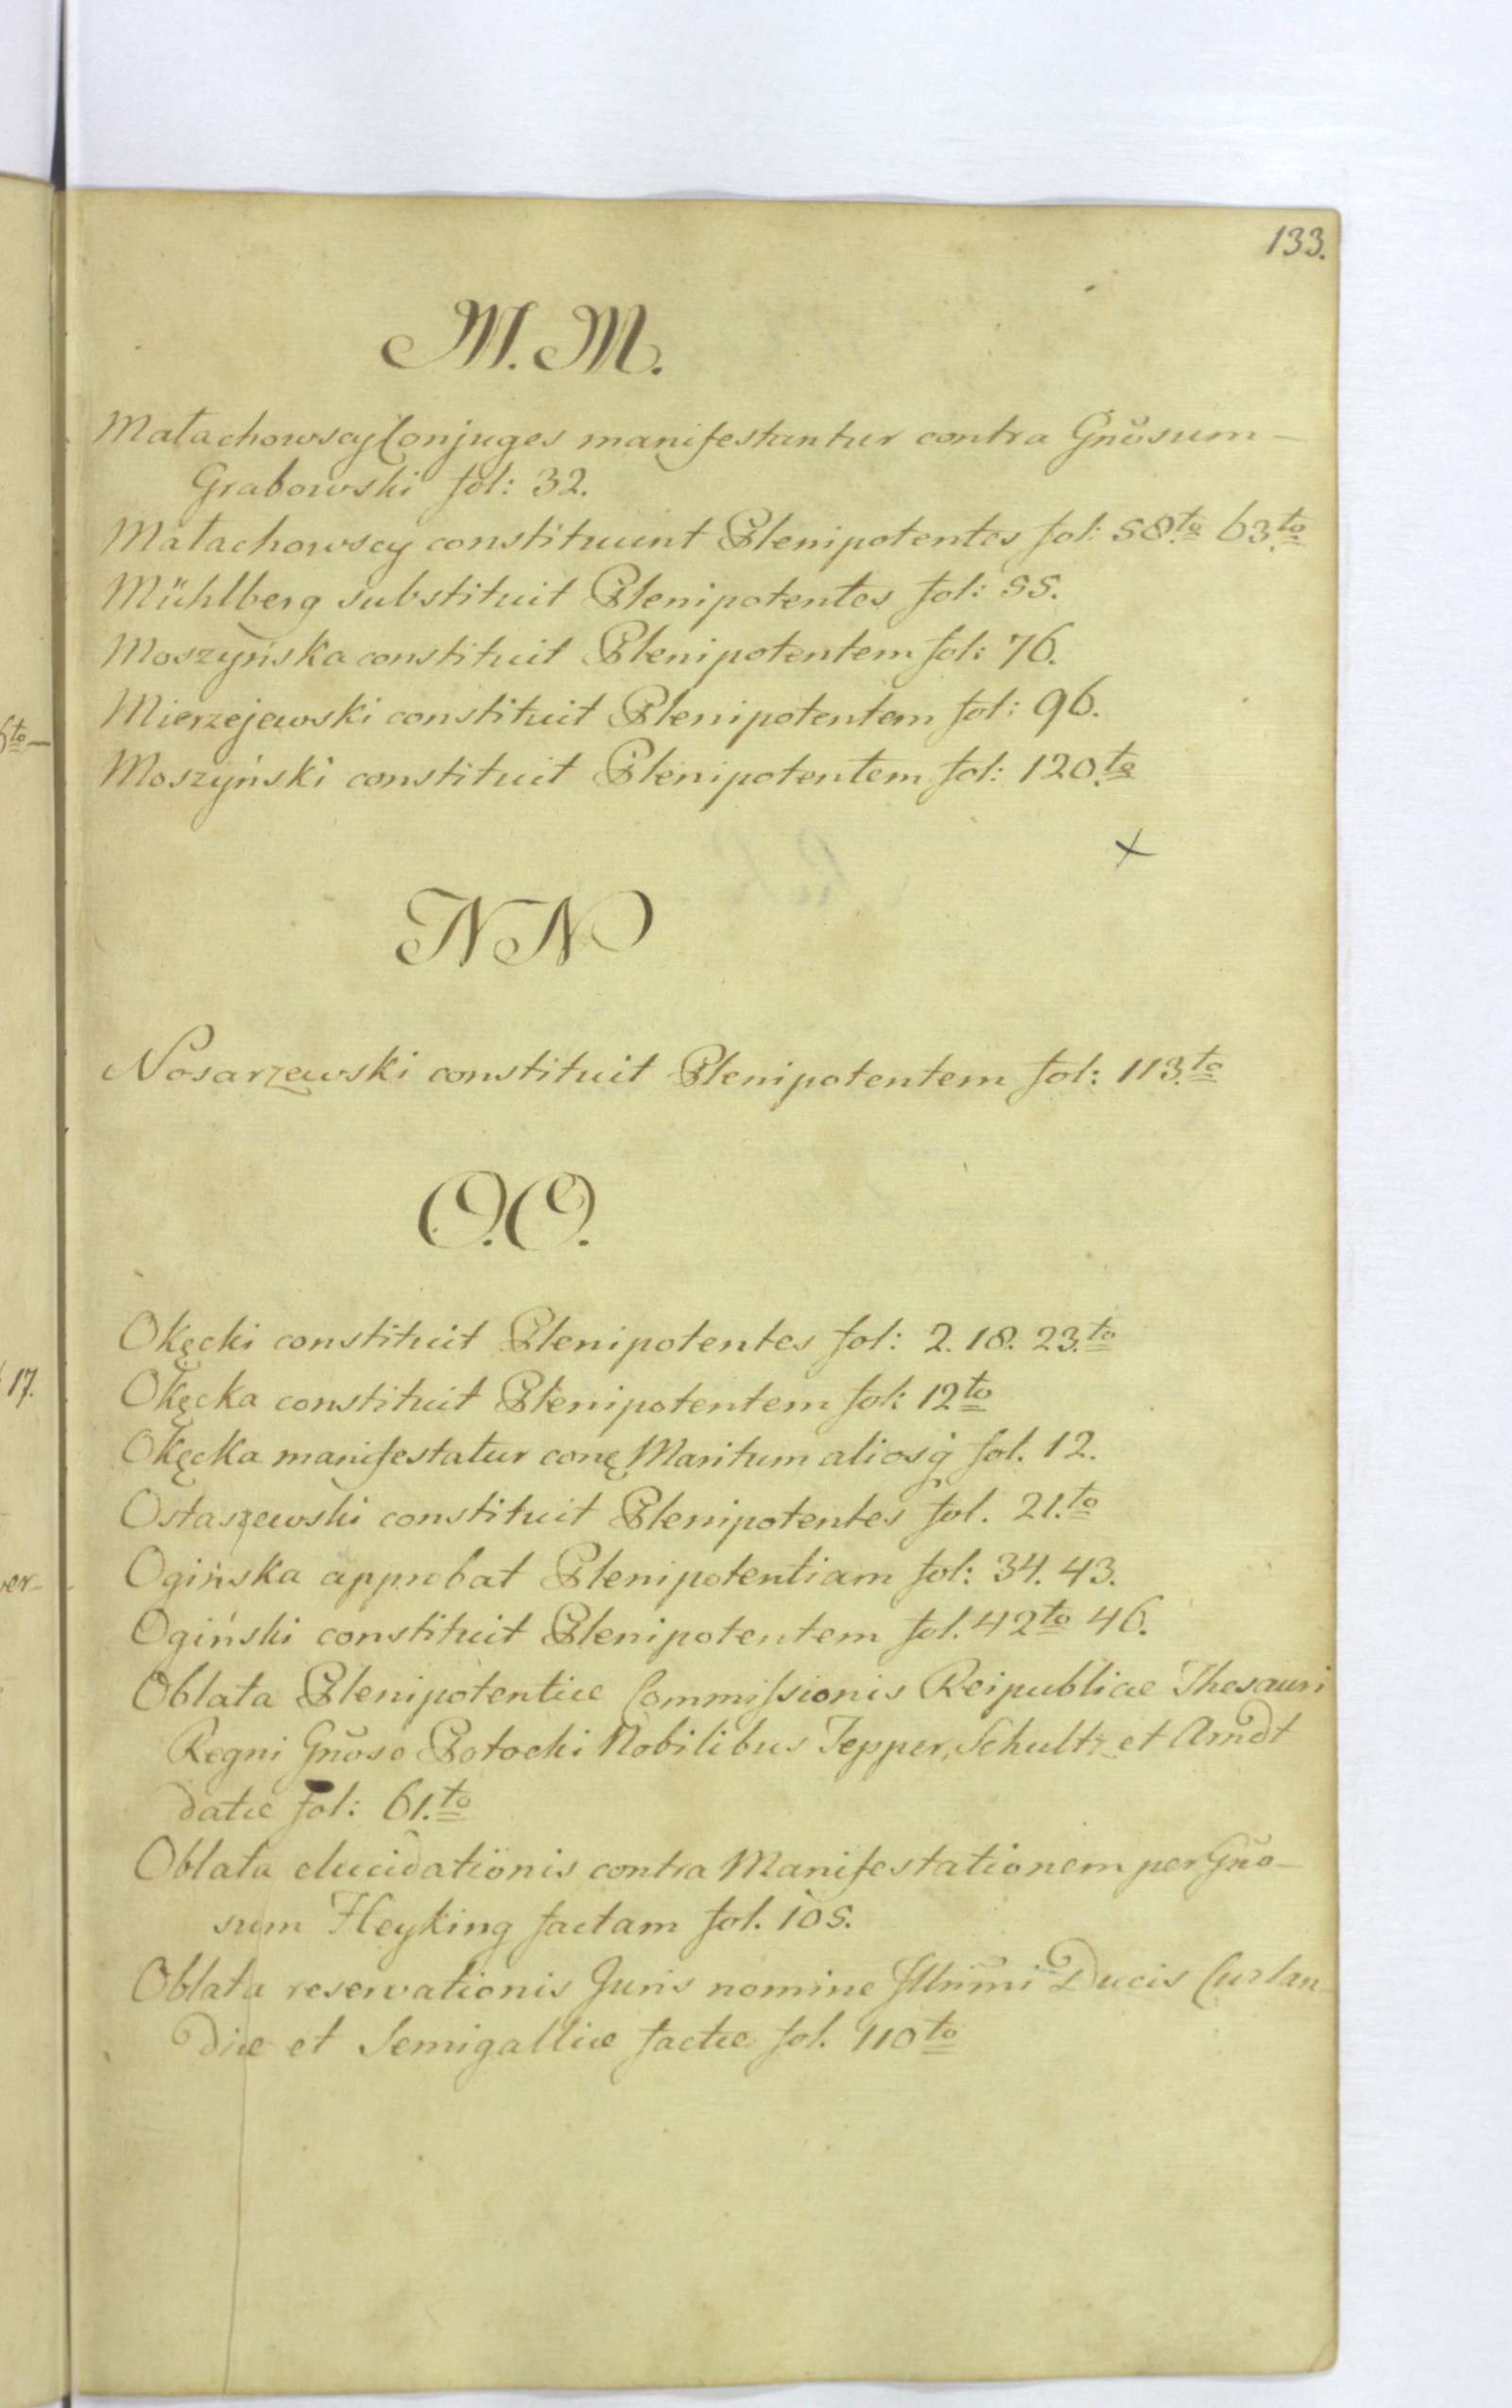 133.
M. M.
Małachowscy Conjuges manifestantur contra Gnõsum
Grabowski fol: 32.
Małachowscy constituunt Plenipotentes fol: 58.to 63.to
Mühlberg substituit Plenipotentes fol: 55.
Moszyńska constituit Plenipotentem fol: 76.
Mierzejewski constituit Plenipotentem fol: 96.
Moszyński constituit Plenipotentem fol: 120.to
N N
Nosarzewski constituit Plenipotentem fol: 113.to
O. O.
Okęcki constituit Plenipotentes fol: 2. 18. 23.to
Okęcka constituit Plenipotentem fol: 12to
Okęcka manifestatur conę Maritum aliosq̇ fol. 12.
Ostaszewski constituit Plenipotentes fol. 21.to
Ogińska approbat Plenipotentiam fol: 34. 43.
Ogiński constituit Plenipotentem fol. 42to 46.
Oblata Plenipotentiæ Commissionis Reipublicæ Thesauri
Regni Gnõso Potocki Nobilibus Tepper, Schultz et Arndt
datæ fol: 61.to
Oblata elucidationis contra Manifestationem per Gnõ-
sum Heyking factam fol. 105.
Oblata reservationis Juris nomine Illm̃i Ducis Curlan-
diæ et Semigalliæ factæ fol. 110to
6to
17.
ver-